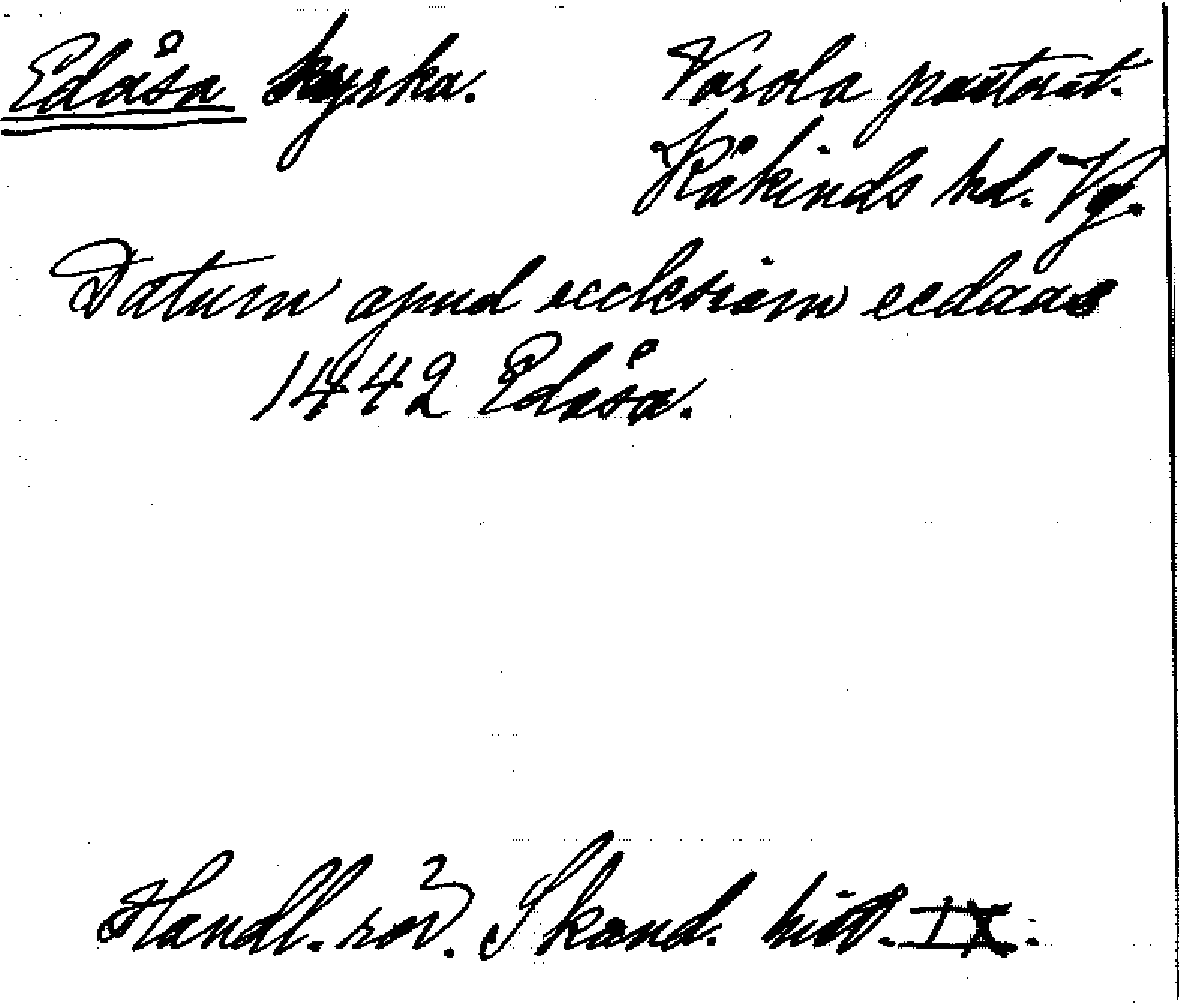 Edåsa kyrka. Varola pastorat.
Kåkinds hd. Vg.
Datum apud ecclesiam eedaas
1442 Edåsa.
Handl. rör. Skand. hist. IX.